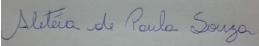 Aletéia de Paula Souza